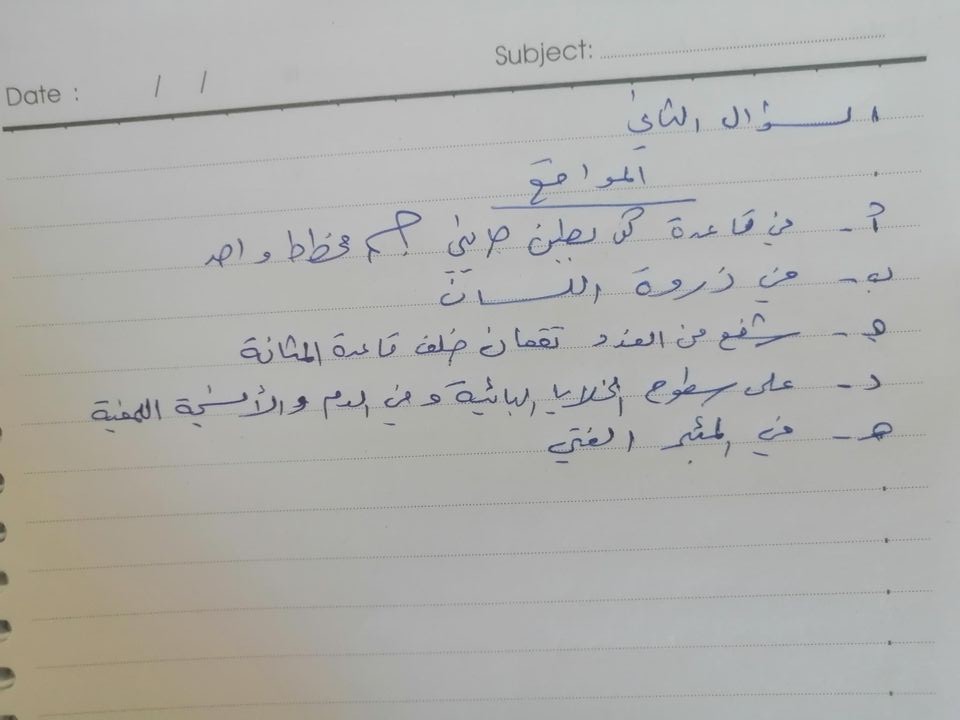 Subject:
Date : / /
السؤال الثاني
المواقع
أ- في قاعدة كل بطين جانبي جسم مخطط واحد
ب- في ذروة اللسان
جـ- شفع من الغدد تقعان خلف قاعدة المثانة
د- على سطوح الخلايا البائية وفي الدم والأنسجة اللمفية
هـ- في المئبر الفتي